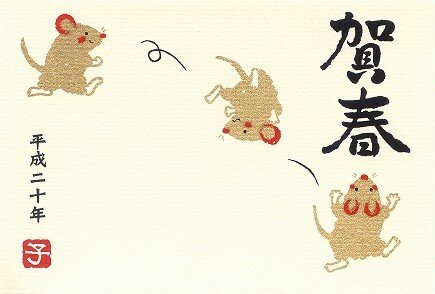 賀春
平成二十年
子